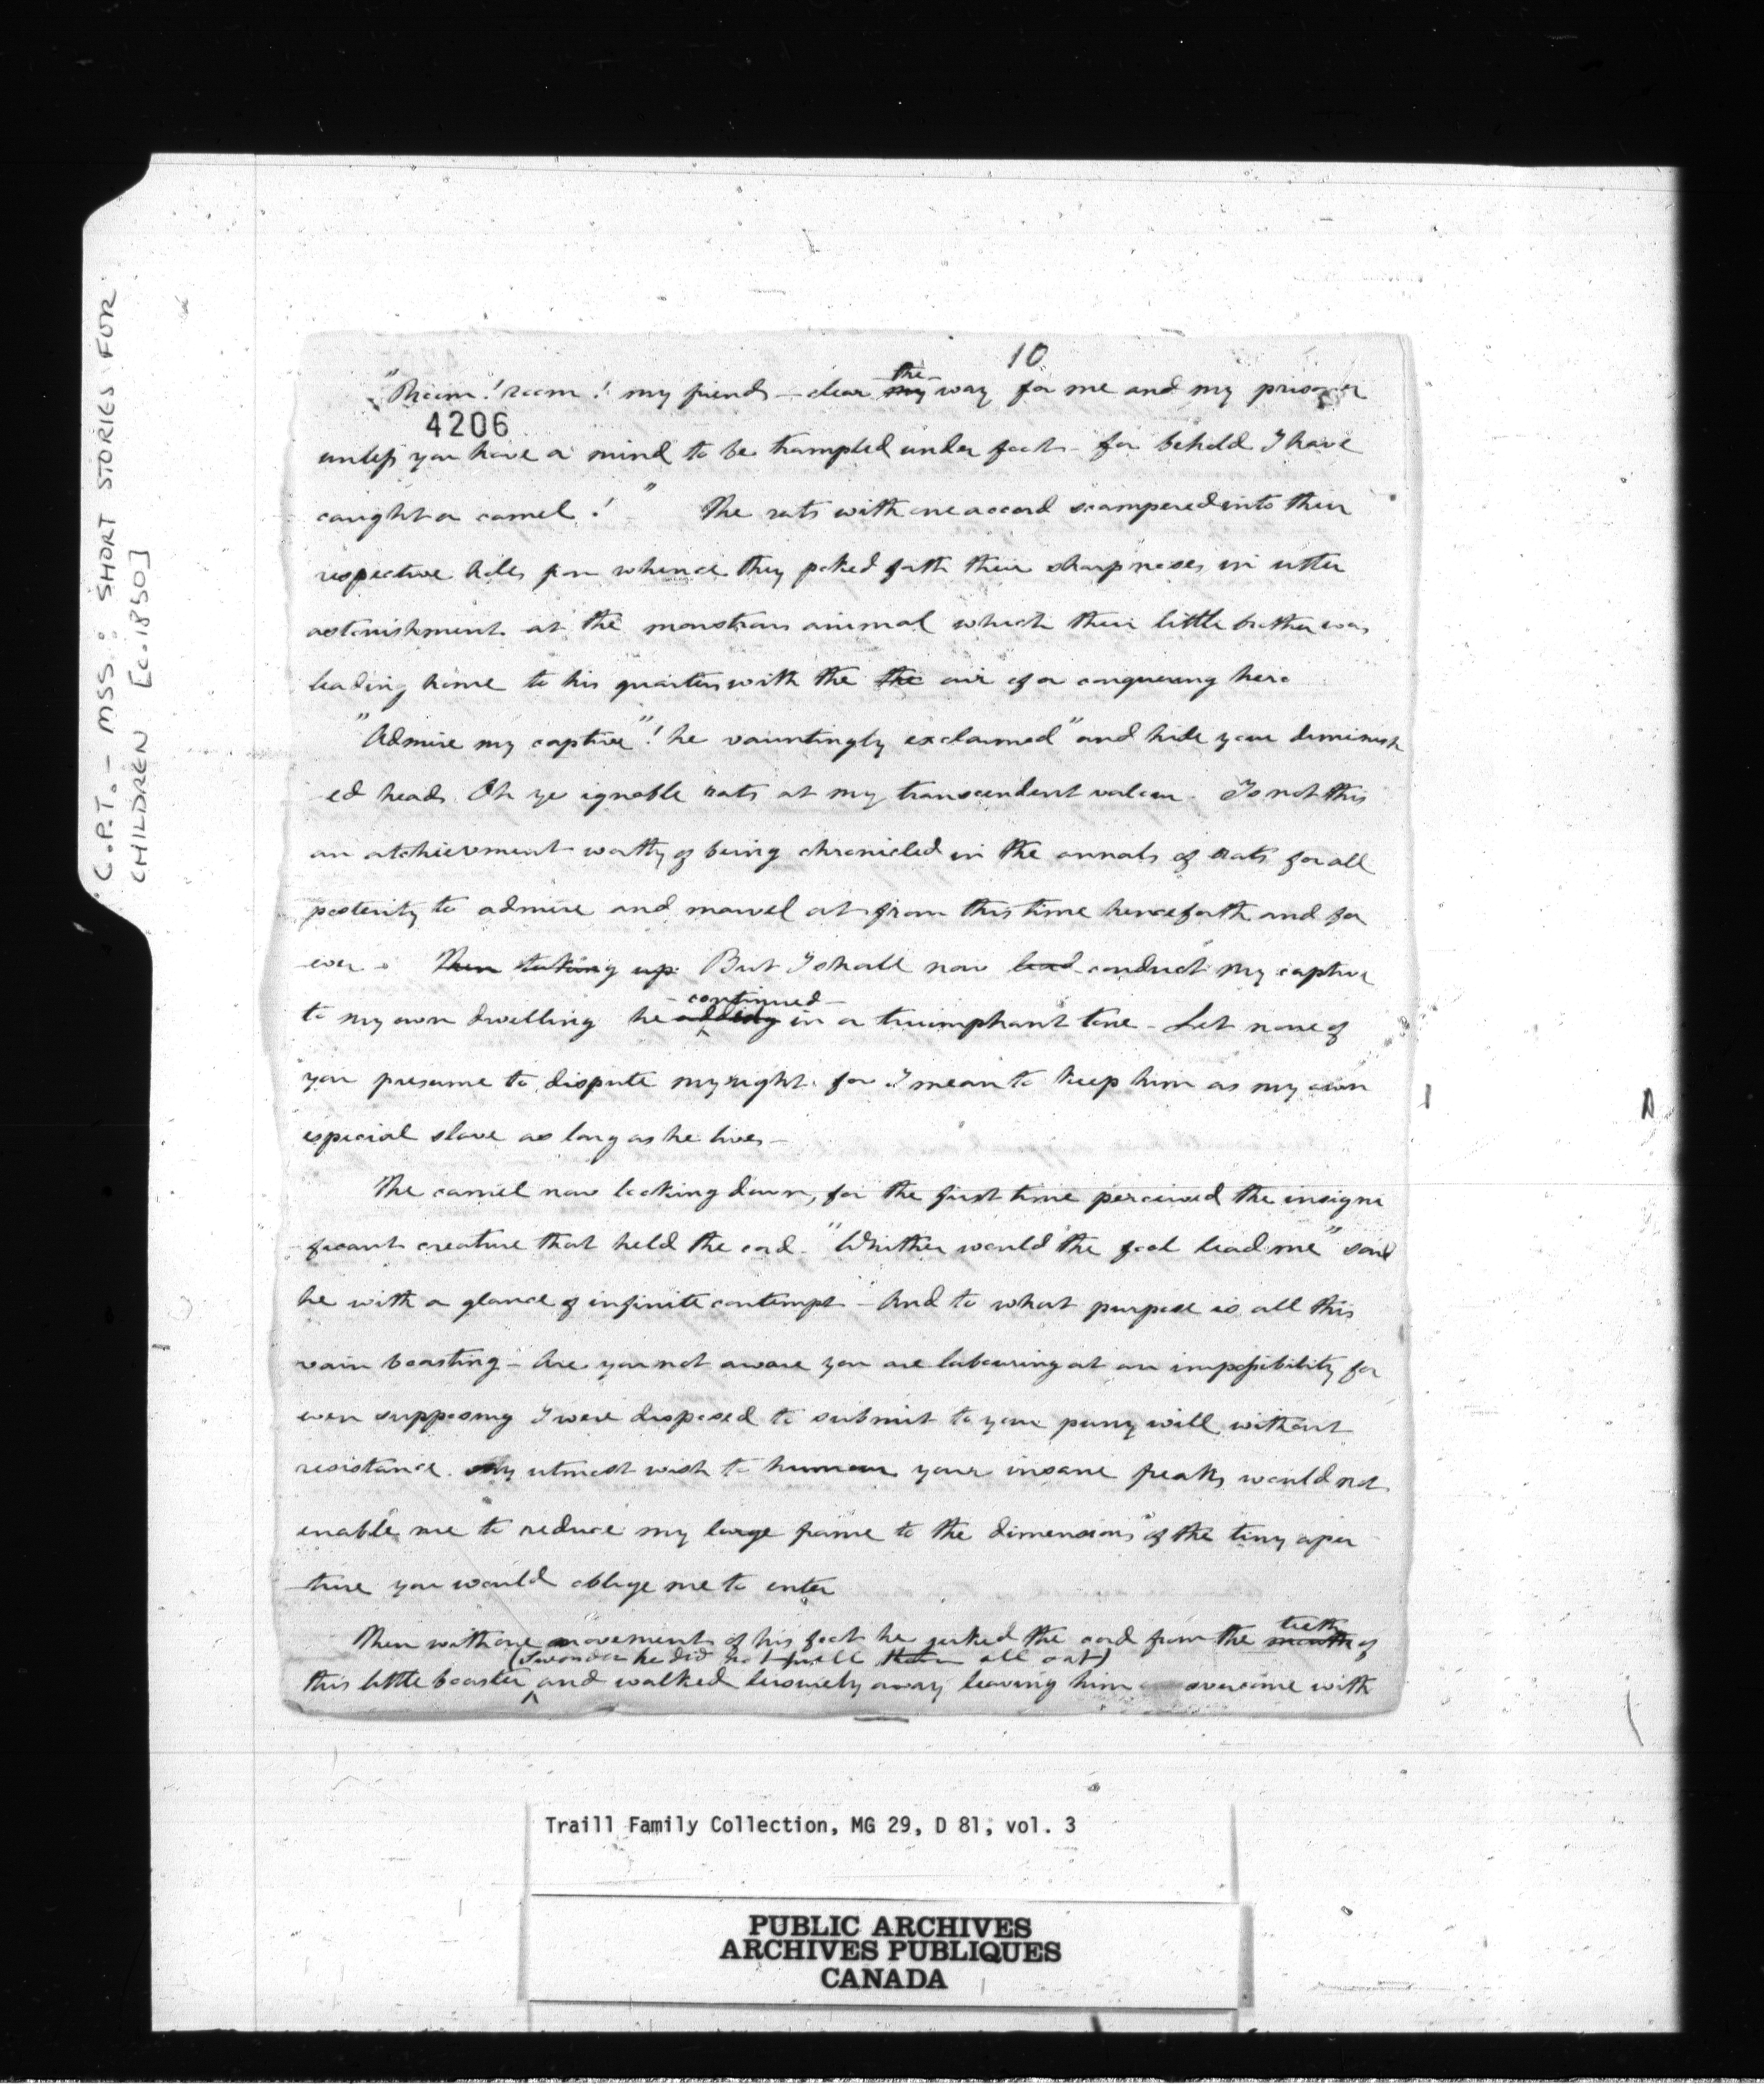 C.P.T. - MSS: SHORT STORIES FOR
CHILDREN [c.1850]
10
the
"Room! room! my friends - clear my way for me and my prisoner
4206
unless you have a mind to be trampled under foot - for behold I have
caught a camel!" The rats with one accord scampered into their
respective holes from whence they poked forth their sharp noses in utter
astonishment at the monstrous animal which their little brother was
leading home to his quarters with the the air of a conquering hero
"Admire my captive"! he vauntingly exclaimed "and hide your diminish
-ed heads Oh ye ignoble rats at my transcendent valour - Is not this
an atchievment worthy of being chronicled in the annals of Rats for all
posterity to admire and marvel at from this time henceforth and for
ever. Then taking up But I shall now lead conduct my captive
continued
to my own dwelling he adding in a triumphant tone - Let none of
you presume to dispute my right for I mean to keep him as my own
especial slave as long as he lives -
The camel now looking down, for the first time perceived the insigni
ficant creature that held the cord - "Whither would the fool lead me" said
he with a glance of infinite contempt - And to what purpose is all this
vain boasting - Are you not aware you are labouring at an impossibility for
even supposing I were disposed to submit to your puny will without
resistance. My utmost wish to humour your insane freaks would not
enable me to reduce my large frame to the dimensions of the tiny aper
-ture you would oblige me to enter
teeth
Then with one movement of his foot he jerked the cord from the mouth of
(I wonder he did not pull them all out)
this little boaster and walked leisurely away leaving him overcome with
Traill Family Collection, MG 29, D 81, vol. 3
PUBLIC ARCHIVES
ARCHIVES PUBLIQUES
CANADA